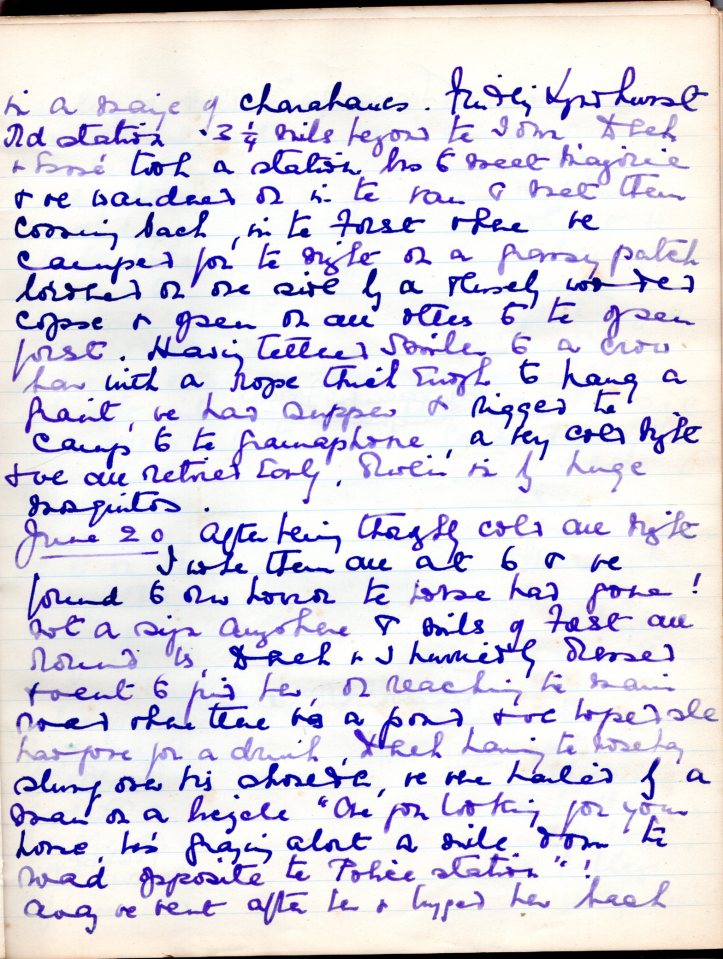 in a maze of charabancs. Finding Lyndhurst
Rd station 3 1/4 miles beyond the town Dick
& took a station bus to meet Marjorie
& we wandered on in the van & met them
coming back, in the Forest where we
camped for the night on a grassy patch
bordered on one side by a densely wooded
copse & open on all others to the open
forest. Having tethered to a crow
bar with a rope thick enough to hang a
giant, we had supper & rigged the
camp to the gramaphone, a very cold night
& we all retired early, driven in by huge
mosquitos.
June 20 After being thoroughly cold all night
I woke them all at 6 & we
found to our horror the horse had gone!
Not a sign anywhere & miles of Forest all
round us, Dick & I hurriedly dressed
& went to find her, on reaching the main
road where there was a pond & we hoped she
had gone for a drink, Dick having the nosebag
slung over his shoulder, we were hailed by a
man on a bicycle "Are you looking for your
horse, he's grazing about a mile down the
road opposite the Police station"!
Away we went after her & lugged her back